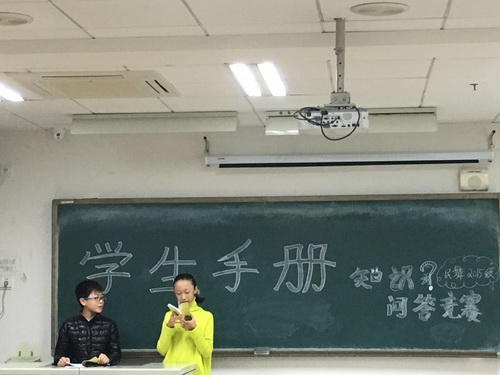 学生手册
知识?
问答竞赛